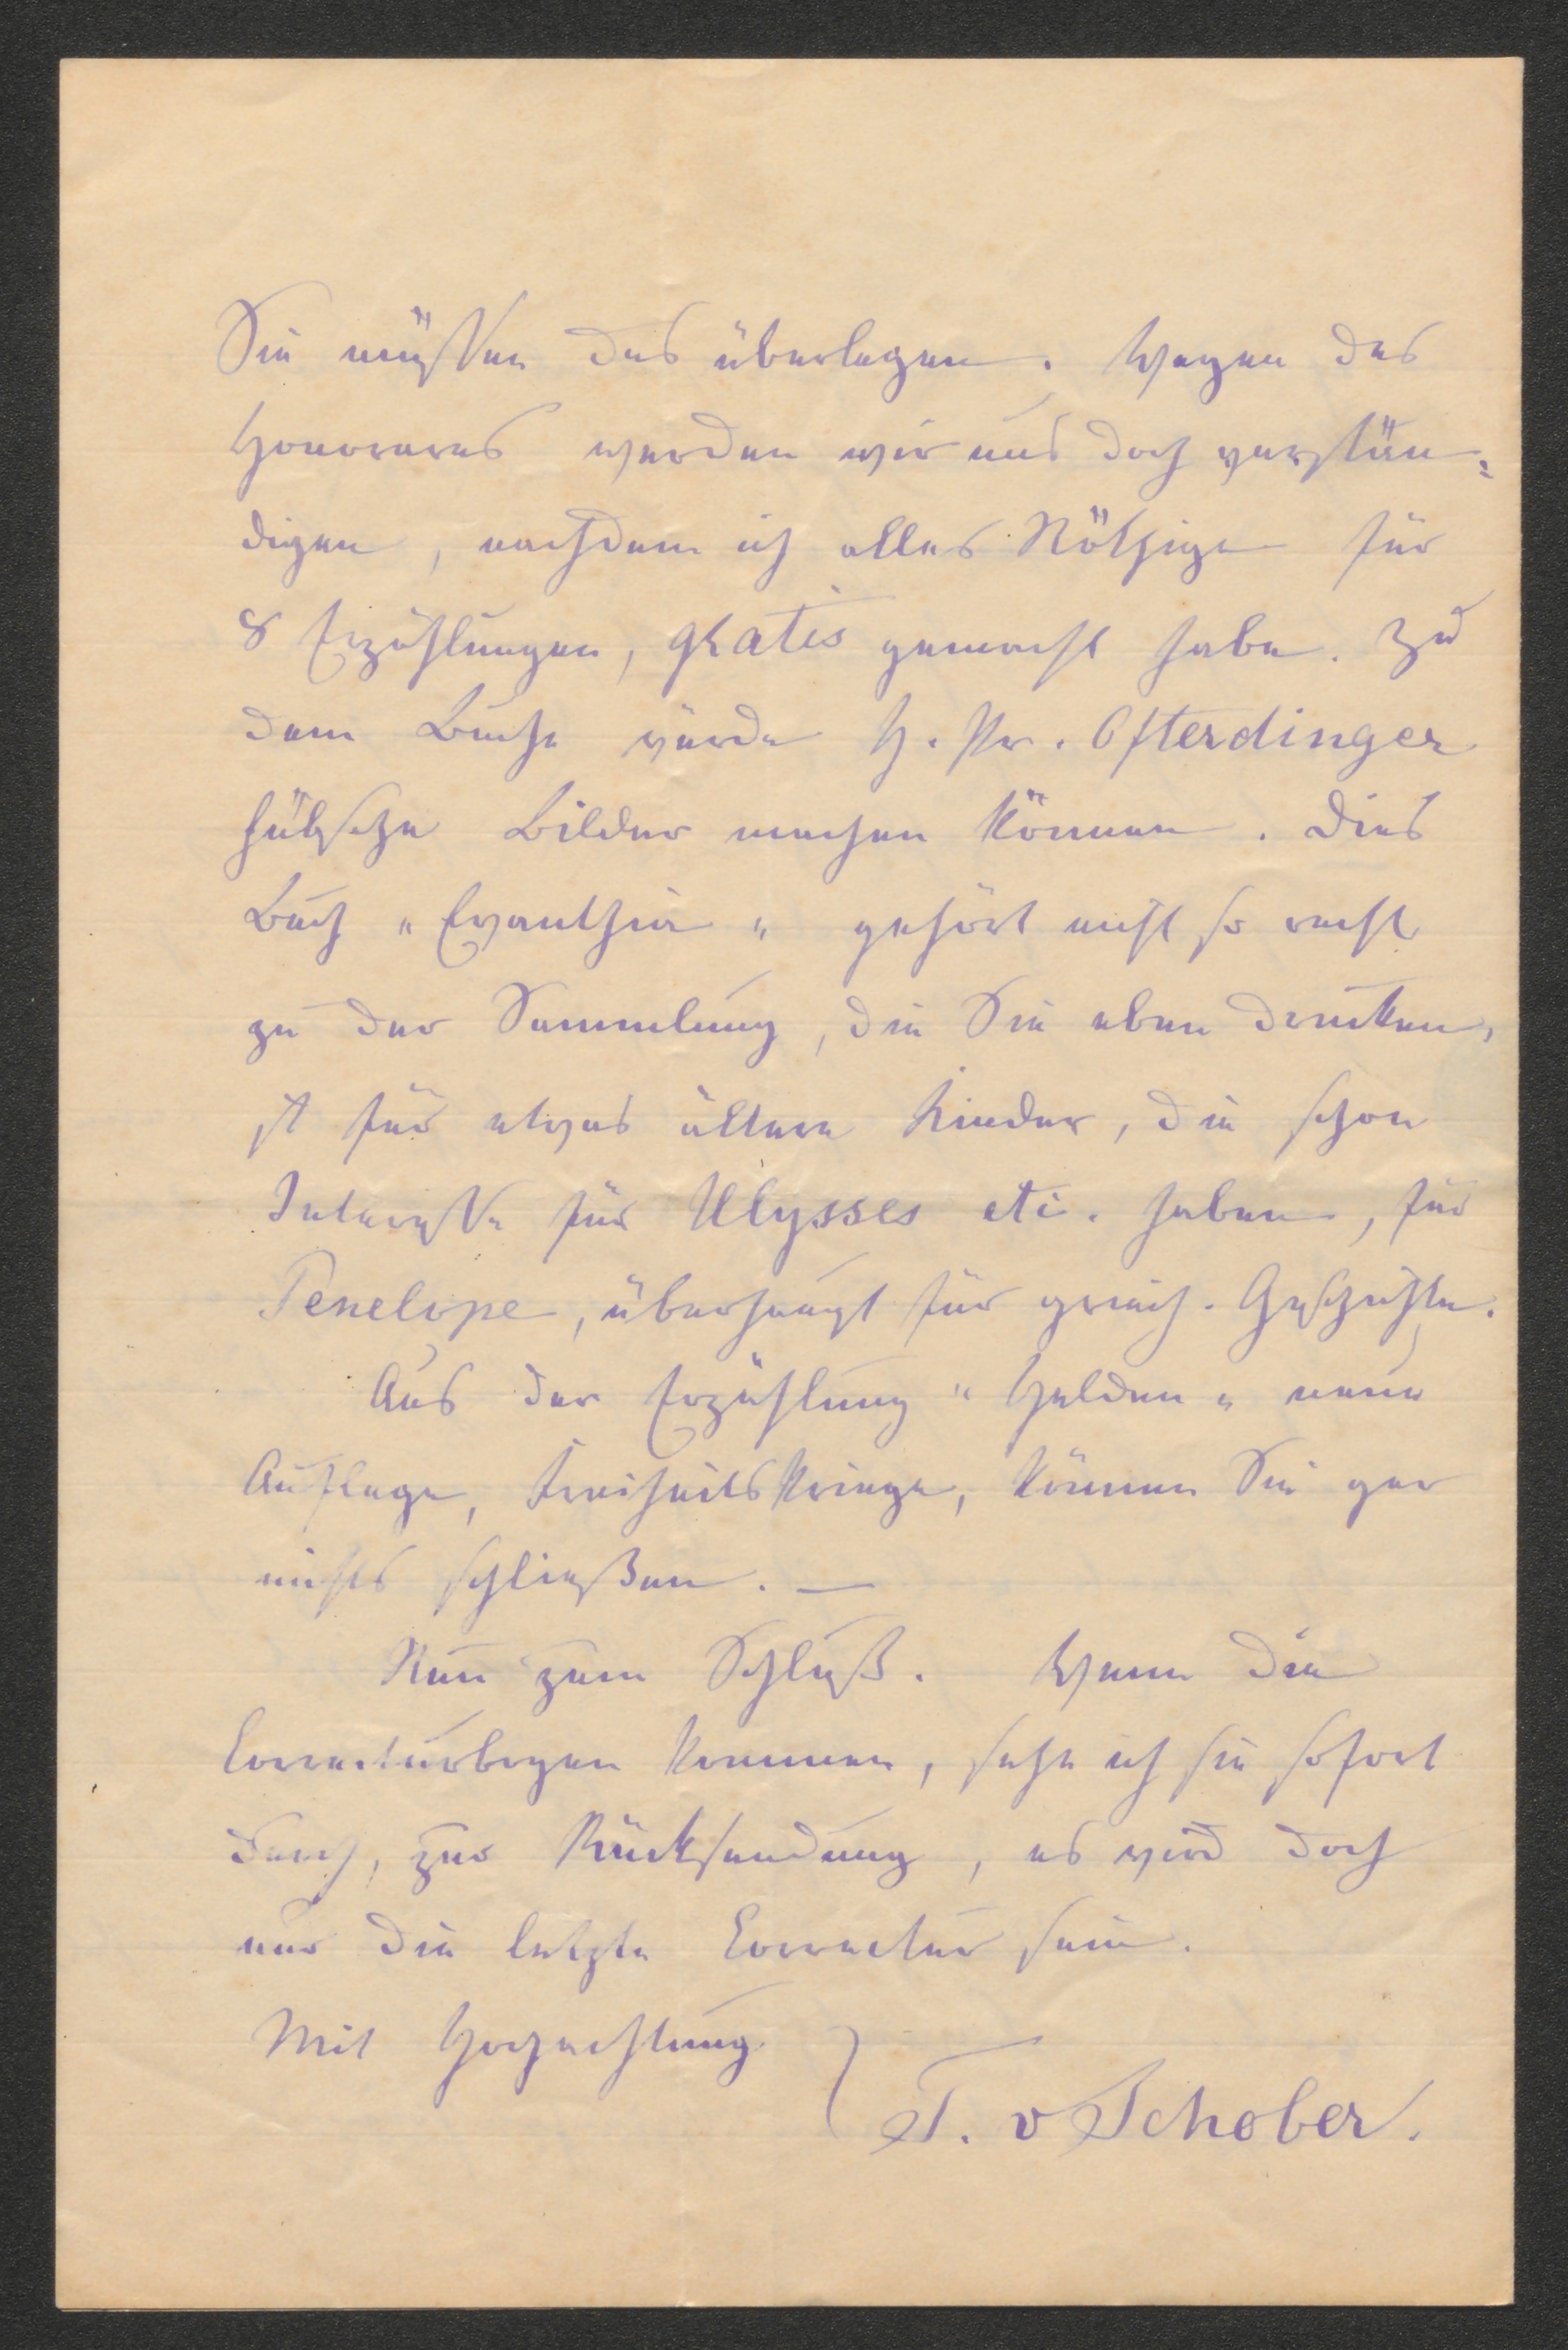 Sie müssen das überlegen. Wegen des
Honorares werden wir uns doch verstän-
digen, nachdem ich alles Nöthige für
8 Erzählungen, gratis gemacht habe. Zu
dem Buche würde H. Pr. Ofterdinger
hübsche Bilder machen können. Dies
Buch „Evanthia" gehört nicht so recht
zu der Sammlung, die Sie eben drucken,
ist für etwas ältere Kinder, die schon
Interesse für Ulysses etc. haben, für
Penelope, überhaupt für griech. Geschichte.
Aus der Erzählung „Helden" neue
Auflage, Freiheitskriege, können Sie gar
nichts schließen. —
Nun zum Schluß. Wenn die
Correcturbogen kommen, sehe ich sie sofort
durch, zur Rücksendung, es wird doch
nur die letzte Correctur sein.
Mit Hochachtung
T. v Schober.